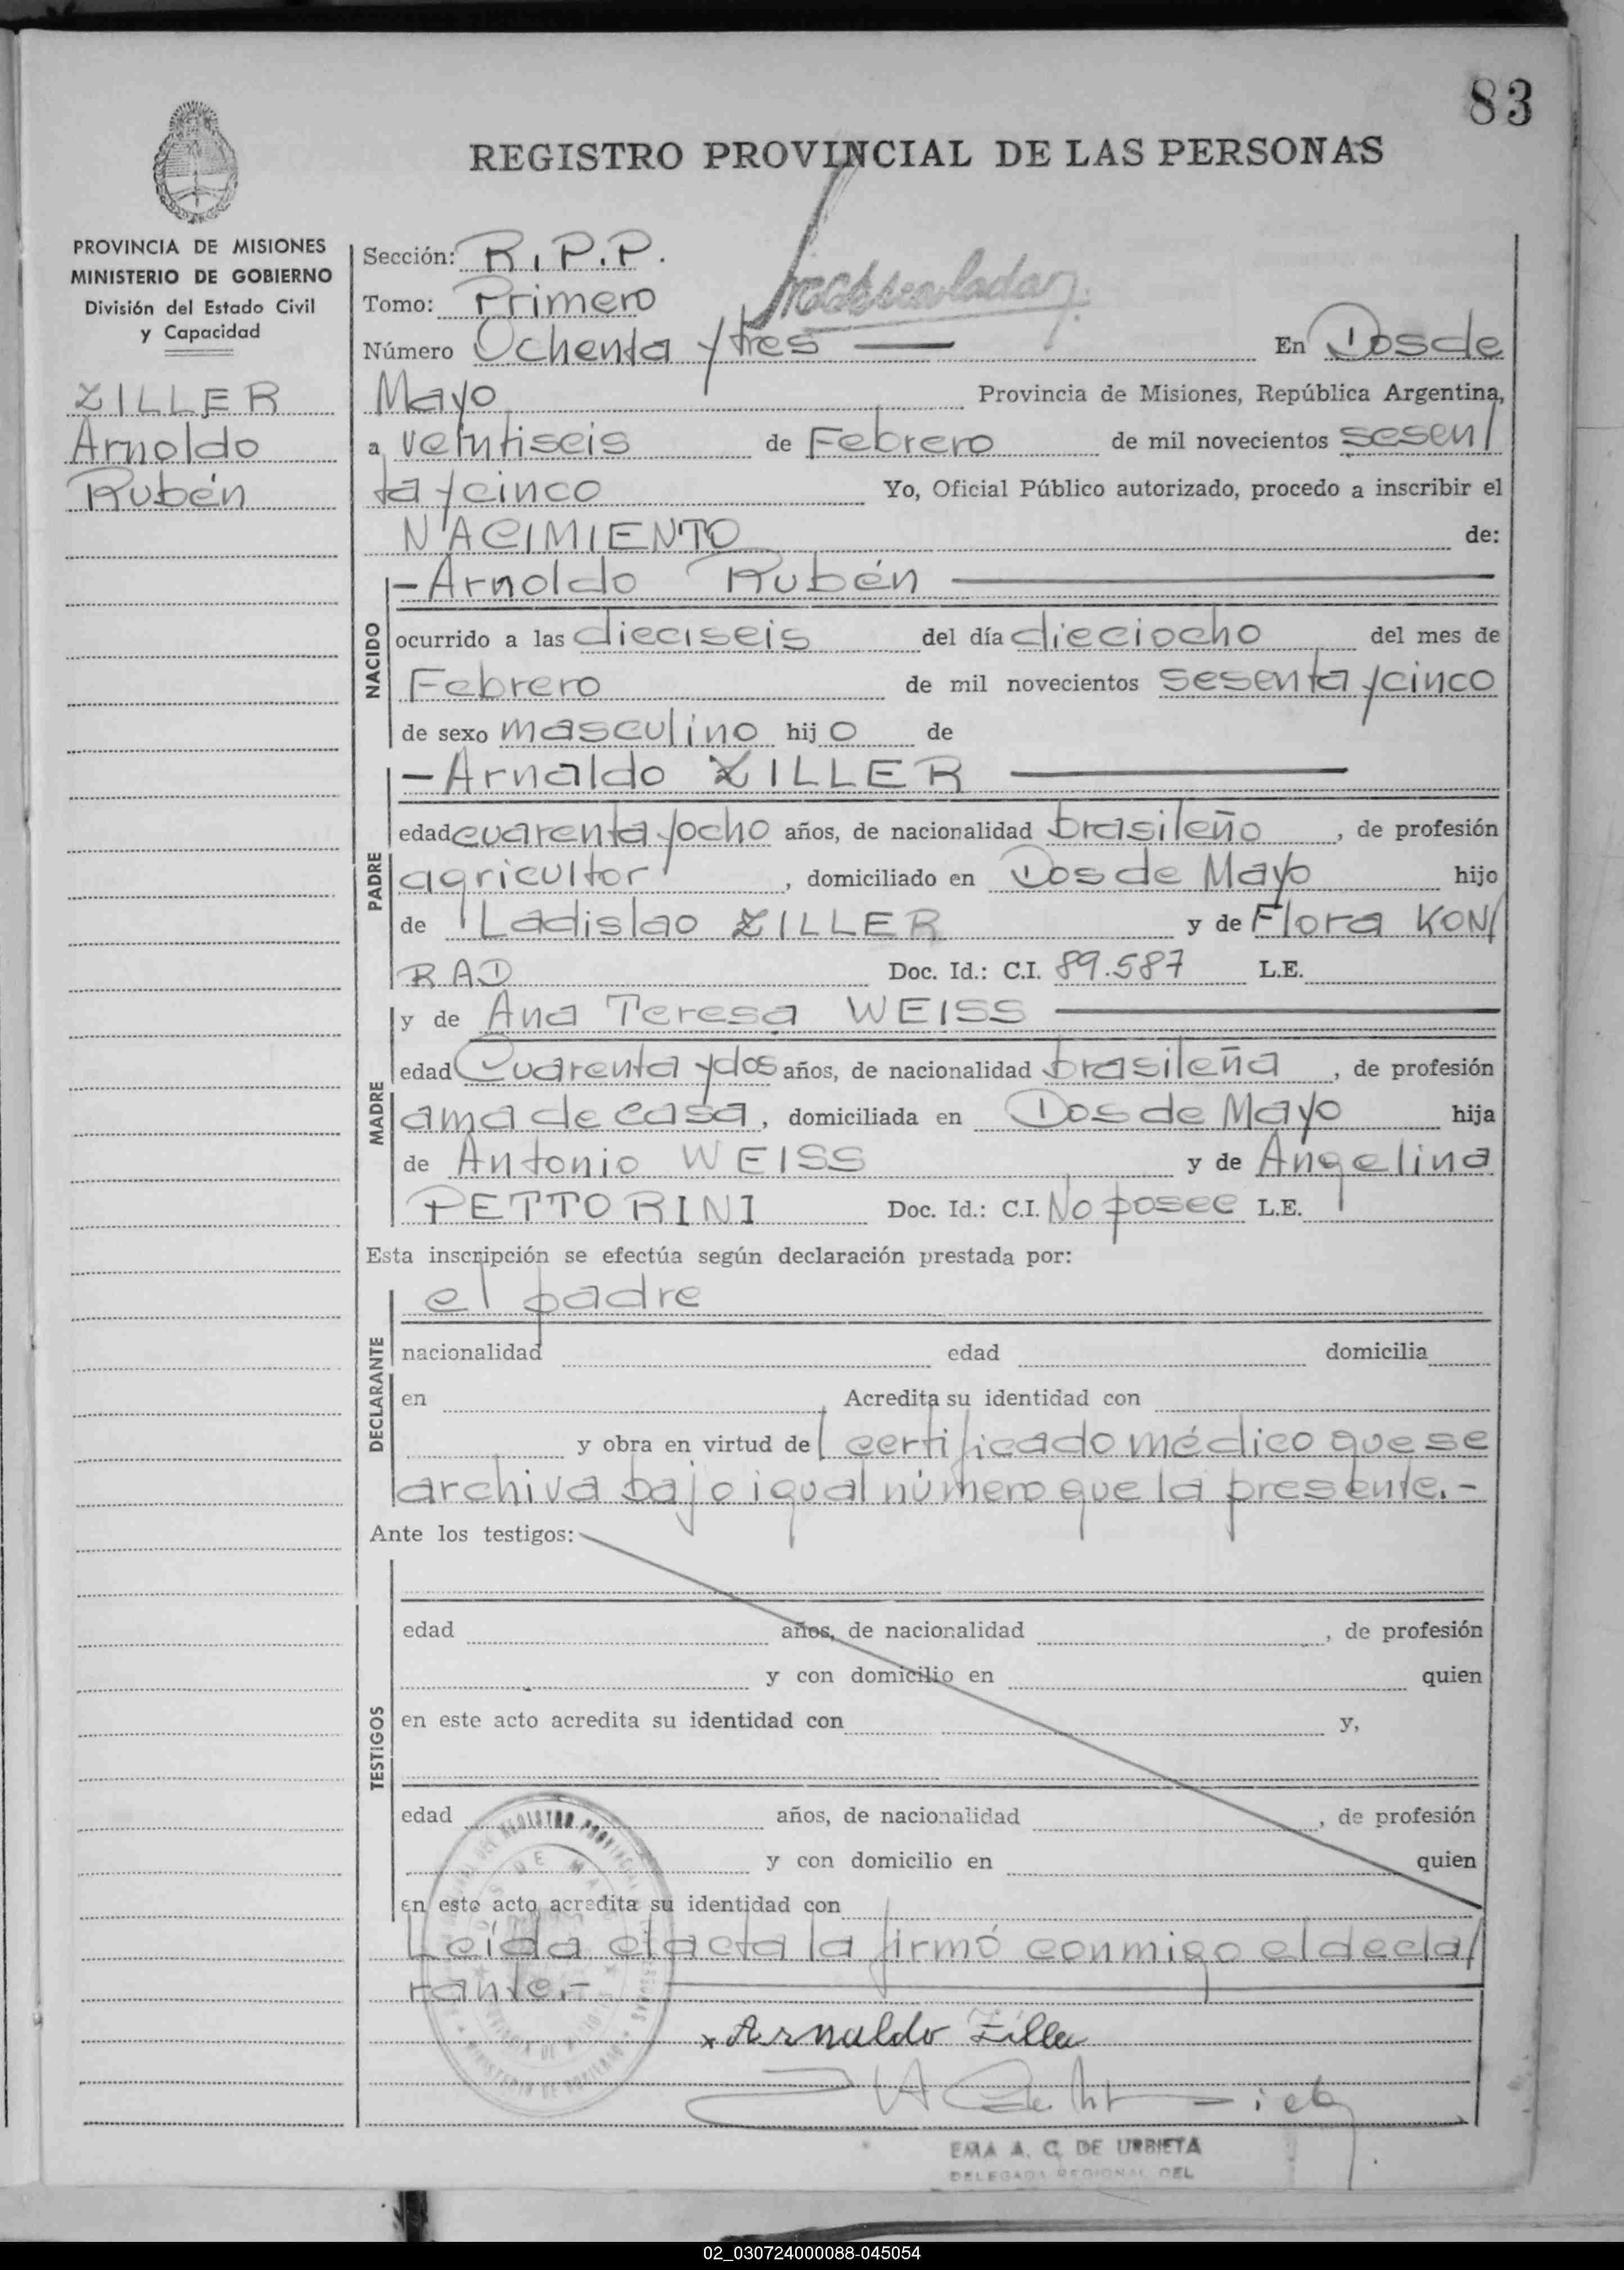 83
REGISTRO PROVINCIAL DE LAS PERSONAS
PROVINCIA DE MISIONES
MINISTERIO DE GOBIERNO
División del Estado Civil
y Capacidad
ZILLER
Arnoldo
Rubén
Sección: R.P.P.
Tomo: Primero
Número Ochenta y tres — En Dos de
Mayo Provincia de Misiones, República Argentina,
a veintiseis de Febrero de mil novecientos sesen/
ta y cinco Yo, Oficial Público autorizado, procedo a inscribir el
NACIMIENTO de:
NACIDO
— Arnoldo Rubén —
ocurrido a las dieciseis del día dieciocho del mes de
Febrero de mil novecientos sesenta y cinco
de sexo masculino hijo de
PADRE
— Arnaldo ZILLER —
edad cuarenta y ocho años, de nacionalidad brasileño, de profesión
agricultor, domiciliado en Dos de Mayo hijo
de Ladislao ZILLER y de Flora KON/
RAD Doc. Id.: C.I. 89.587 L.E.
MADRE
y de Ana Teresa WEISS —
edad Cuarenta y dos años, de nacionalidad brasileña, de profesión
ama de casa, domiciliada en Dos de Mayo hija
de Antonio WEISS y de Angelina
PETTORINI Doc. Id.: C.I. No posee L.E.
Esta inscripción se efectúa según declaración prestada por:
DECLARANTE
el padre
nacionalidad edad domicilia
en Acredita su identidad con
y obra en virtud del certificado médico que se
archiva bajo igual número que la presente.-
Ante los testigos:
TESTIGOS
edad años, de nacionalidad, de profesión
y con domicilio en quien
en este acto acredita su identidad con y,
edad años, de nacionalidad, de profesión
y con domicilio en quien
en este acto acredita su identidad con
Leída el acta la firmó conmigo el decla/
rante.-
x Arnaldo Ziller
EMA A. C. DE URBIETA
DELEGADA REGIONAL DEL
02_030724000088-045054